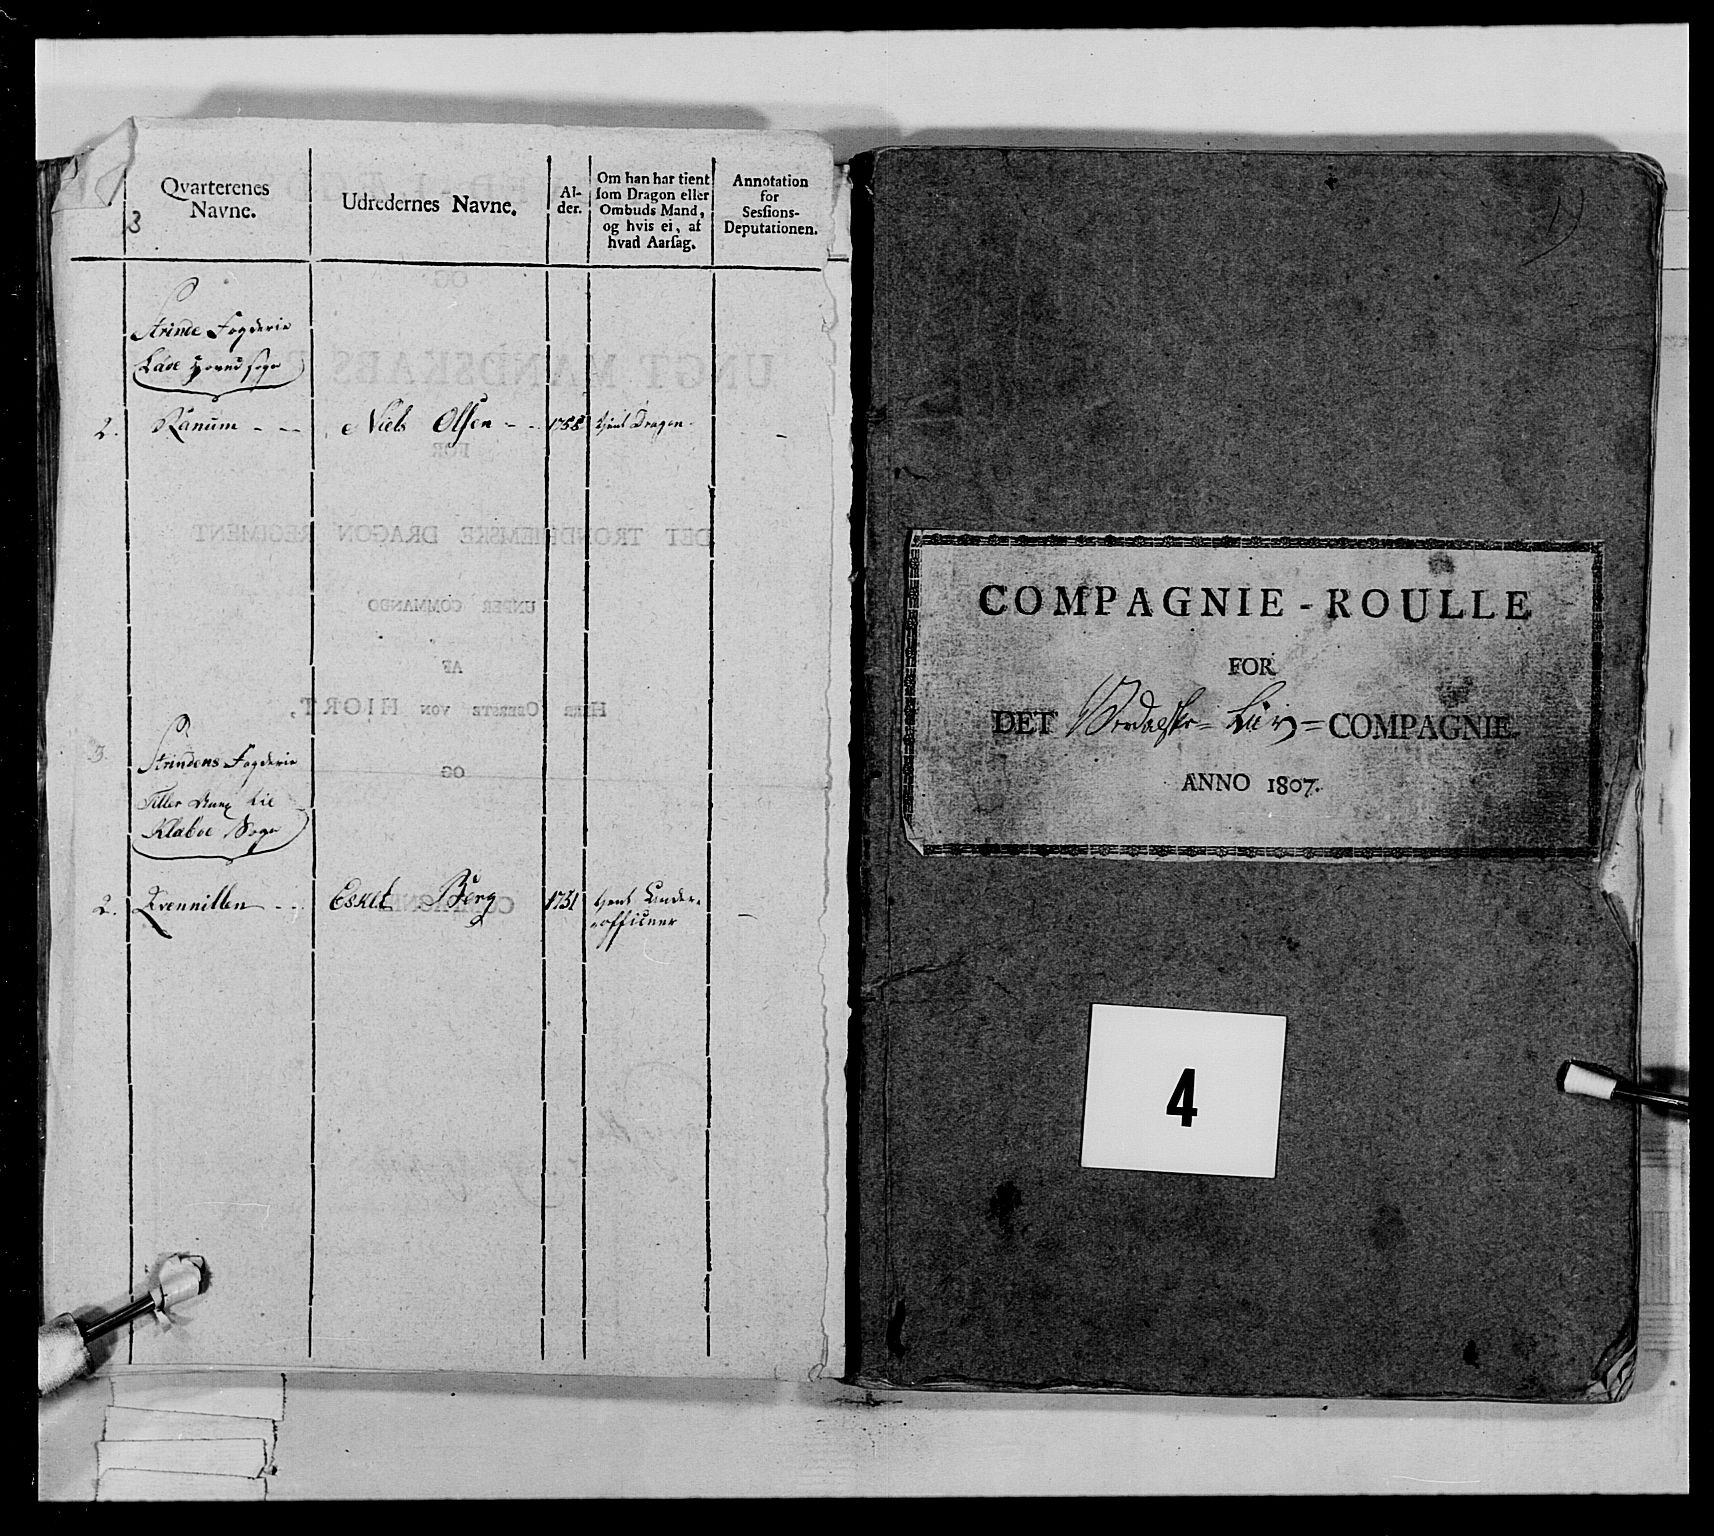 Qvarterenes
Navne.
Udredernes Navne.
Al-
der.
Om han har tient
som Dragon eller
Ombuds Mand,
og hvis ei, af
hvad Aarsag.
Annotation
for
Sessions-
Deputationen.
3
Strinde Fogderie
Lade Hoved sogn
2. Ranum - -- Niels Olsen - - 1758 tjent Dragon - -
3.
Strindens Fogderie
Tiller til
Klæboe Sogn
2. Qvennillen - - Eskel Berg 1751 tjent Under- -
officeer
COMPAGNIE-ROULLE
FOR
DET Værdalske Liv = COMPAGNIE.
ANNO 1807.
4
1)